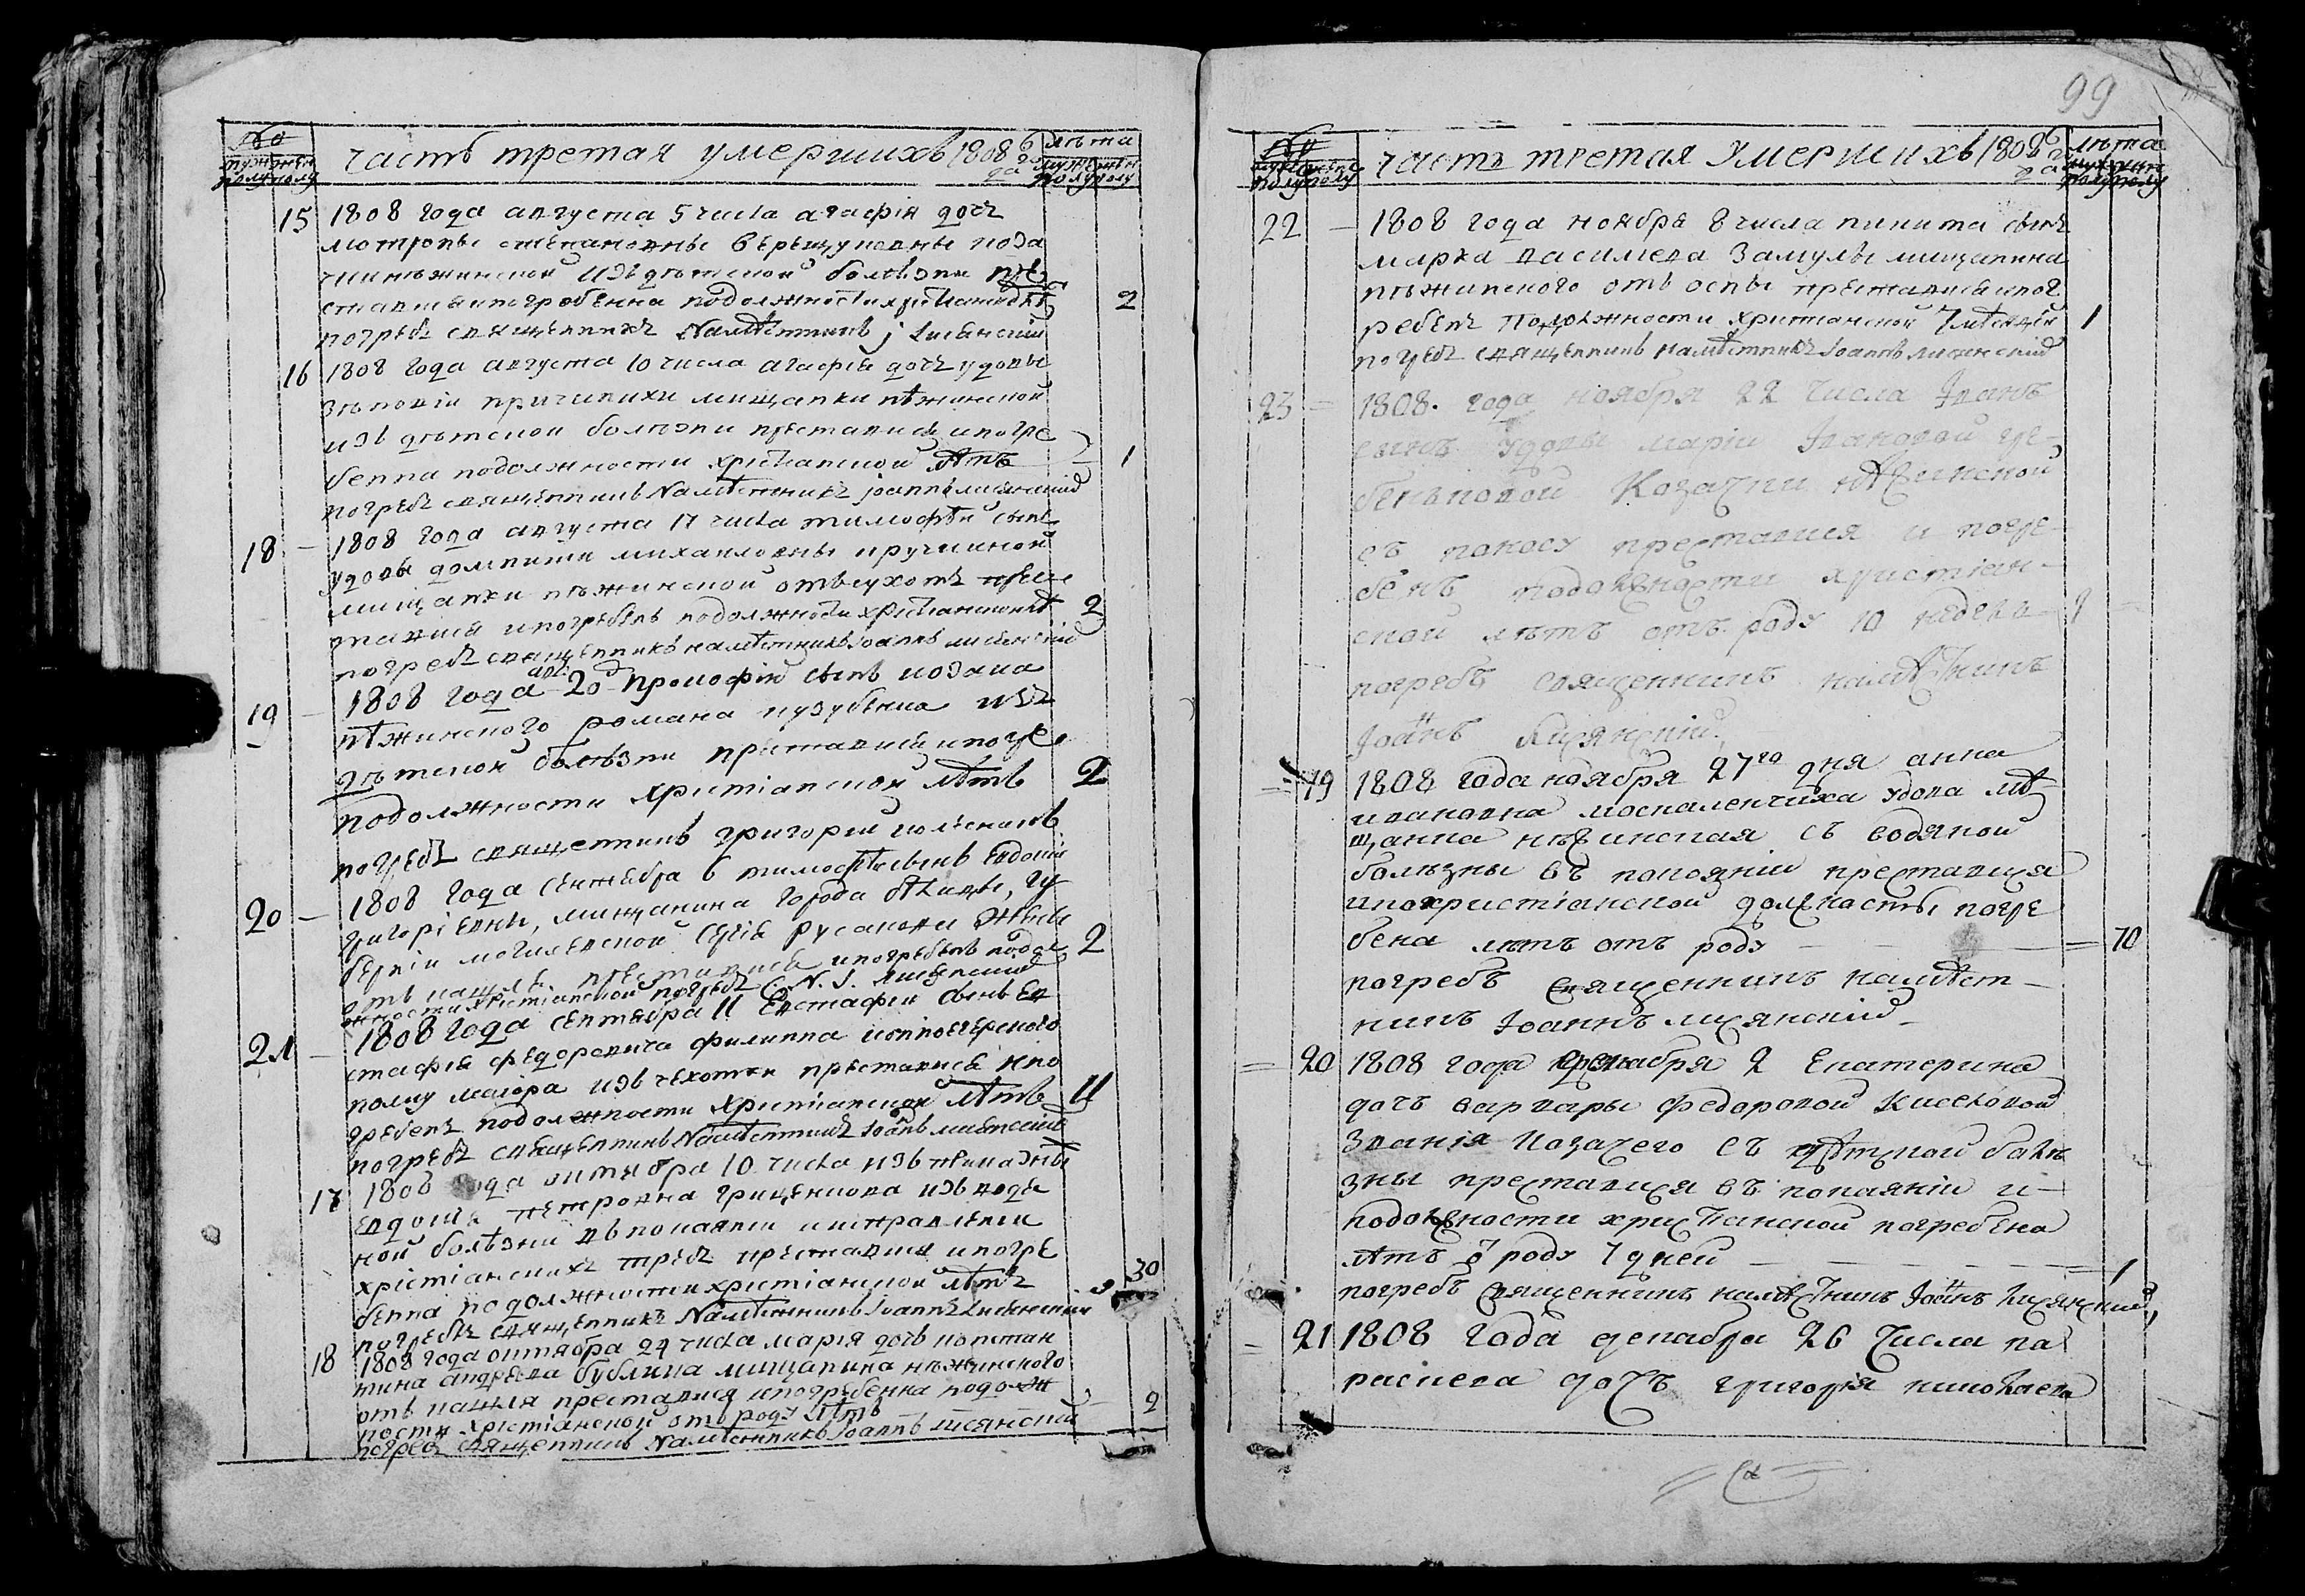 часть третая умершихъ 1808 года
лѣта
15 1808 года августа 5 числа агафія дочь
мотроны степановны верещуковны коза
чки нѣжинской изъ дѣтской болѣзни пре
ставися и погребенна подолжности християнской
2
погребъ священникъ Намѣстникъ і Лисянскій
16 1808 года августа 10 числа агафія дочь удовы
мищанки нѣжинской
изъ дѣтской болѣзни преставися и погре
бенна подолжности християнской лѣтъ 1
погребъ священникъ Намѣстникъ іоаннъ лисянскій
18 – 1808 года августа 17 числа тимофѣй сынъ
удовы домникии михаиловны кручкиной
мищанки нѣжинской отъ сухотъ прес
тавися и погребенъ подолжности християнской 2
погребъ священникъ намѣстникъ Іоаннъ лисянскій
19 – 1808 года авг: 20 Прокофій сынъ козака
нѣжинского романа кузубенка изъ
дѣтской болѣзни преставися и погре
подолжности християнской лѣтъ 2
погребъ священникъ григорій
20 – 1808 года сентября 6 тимофѣй сынъ Евдокіи
григоріевны, мищанина города гу
берніи могилевской Сергія русанови жены
2
отъ кашля преставися и погребенъ подол
жности християнской погребъ С. N. І. лисянскій
21 – 1808 года септября 11 Евстафій сынъ Ев
стафія федоровича филипна конноегерского
полку маіора изъ чехотки преставися и по
гребенъ подолжности християнской лѣтъ 11
погребъ священникъ Намѣстникъ Іоаннъ лисянскій
17 1808 года октября 10 числа
Евдокия петровна грищенкова изъ водя
ной болѣзни въ покаяніи и исправленіи
християнскихъ требъ преставися и погре
бенна подолжности християнской лѣтъ 30
погребъ священникъ Намѣстникъ Іоаннъ Лисянскій
18 1808 года октября 24 числа марія дочь констан
тина андреева бублика мищанина нѣжинского
отъ кашля преставися и погребенна подолж
ности християнской отъ роду лѣтъ 2
погребъ священникъ Намѣстникъ Іоаннъ лисянскій
99
часть третая Умершихъ 1808 года
лѣта
22 – 1808 года ноября 8 числа никита сынъ
марка василиева Замулы мищанина
нѣжинского отъ оспы преставися и пог
ребенъ Подолжности християнской 1
погребъ священникъ намѣстникъ Іоаннъ лисянскій
23 = 1808. года ноября 22 числа Іванъ
сынъ удовы маріи Івановой гре
беньковой Козачки нѣжинской
съ поносу преставися и погре
бенъ подолжности християн
ской лѣтъ отъ роду 10 недель
погребъ священникъ намѣстникъ
Іоаннъ Лисянскій.
= 19 1808 года ноября 27го дня анна
ивановна москаленчиха удова мѣ
щанка нѣжинская съ водяной
болѣзны въ покояніи преставися
и по християнской должносты погре
бена лѣтъ отъ роду = 70
погребъ священникъ намѣст
никъ Іоаннъ лисянскій
= 20 1808 года декабря 2 Екатерина
дочь варвары федоровой Киселовой
званія козачего съ дѣтской болѣ
зны преставися въ покаяніи и
подолжности християнской погребена
лѣтъ о роду 7 дней = 1
погребъ священникъ намѣстникъ Іоаннъ Лисянскій,
= 21 1808 года декабра 26 Числа па
раскева дочь григорія николаева